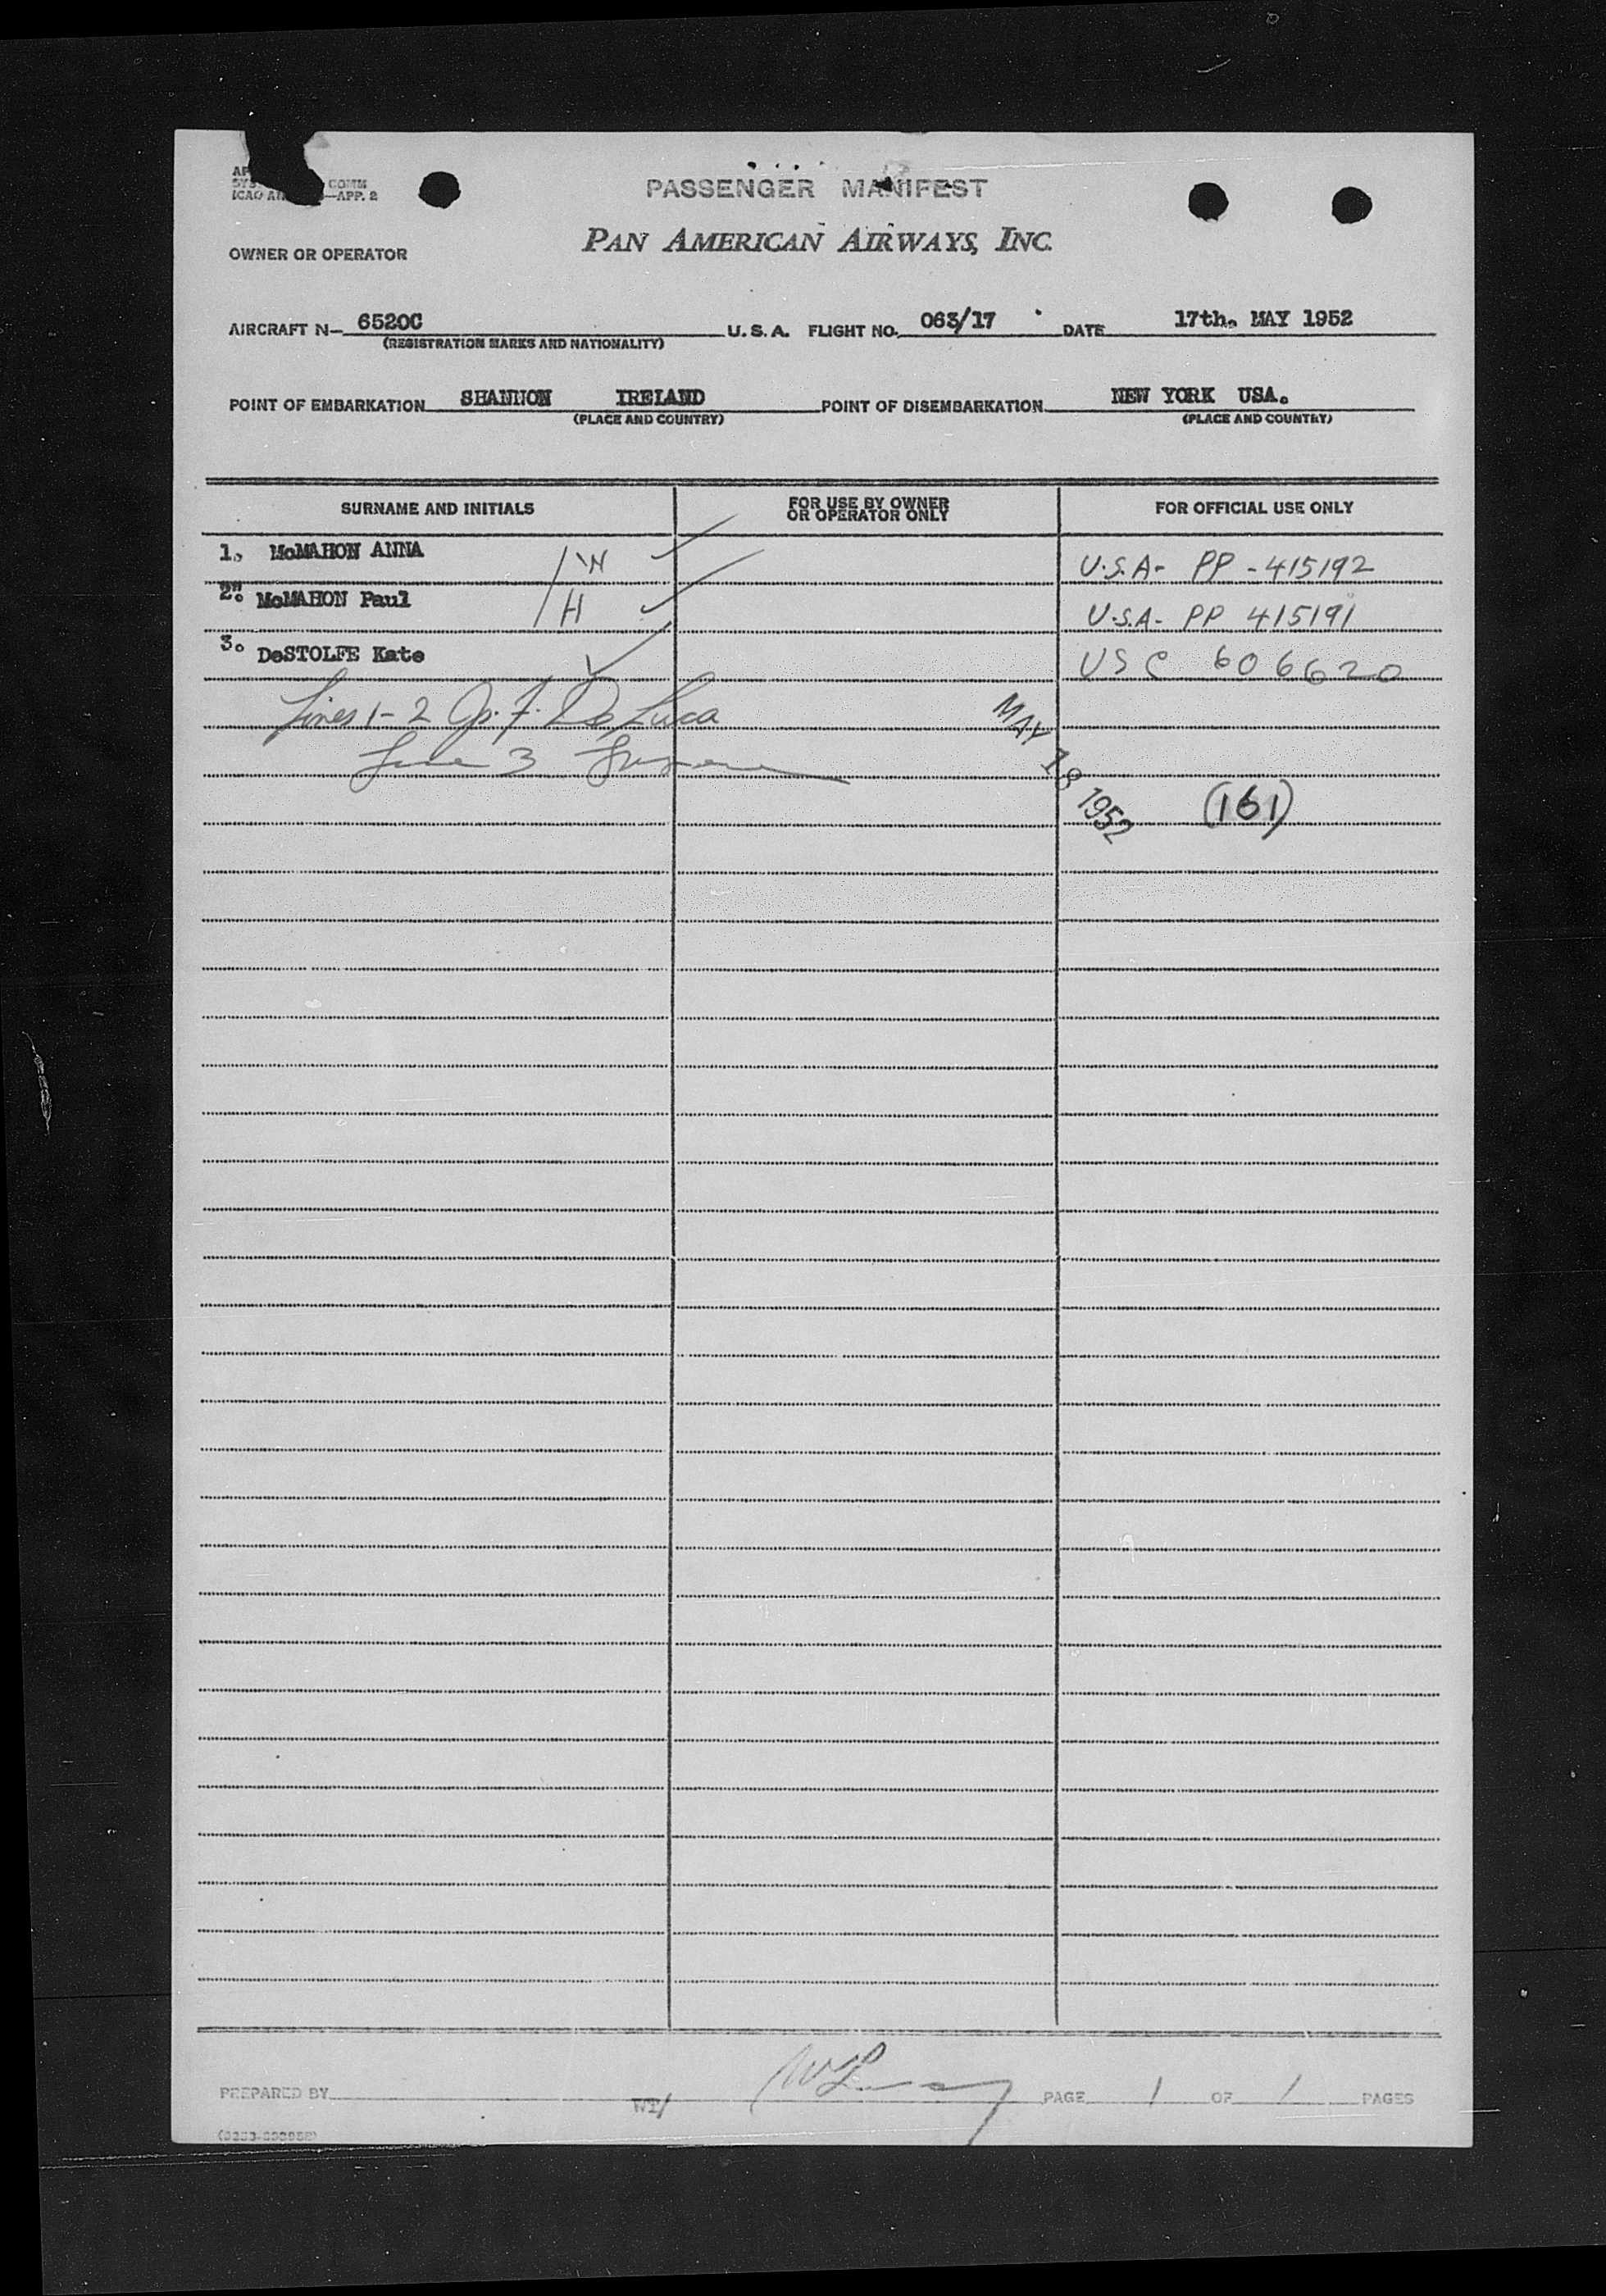 COMM
ICAO —APP. 2
PASSENGER MANIFEST
PAN AMERICAN AIRWAYS, INC.
OWNER OR OPERATOR
AIRCRAFT N— 6520C U. S. A. FLIGHT NO. 063/17 DATE 17th. MAY 1952
(REGISTRATION MARKS AND NATIONALITY)
POINT OF EMBARKATION SHANNON IRELAND POINT OF DISEMBARKATION NEW YORK USA.
(PLACE AND COUNTRY) (PLACE AND COUNTRY)
SURNAME AND INITIALS FOR USE BY OWNER OR OPERATOR ONLY FOR OFFICIAL USE ONLY
1. McMAHON ANNA W U.S.A- PP -415192
2. McMAHON Paul H U.S.A- PP 415191
3. DeSTOLFE Kate USC 606620
Lines 1-2 Jo. F. De Luca
Line 3
MAY 18 1952
(161)
PREPARED BY WT/ PAGE 1 OF 1 PAGES